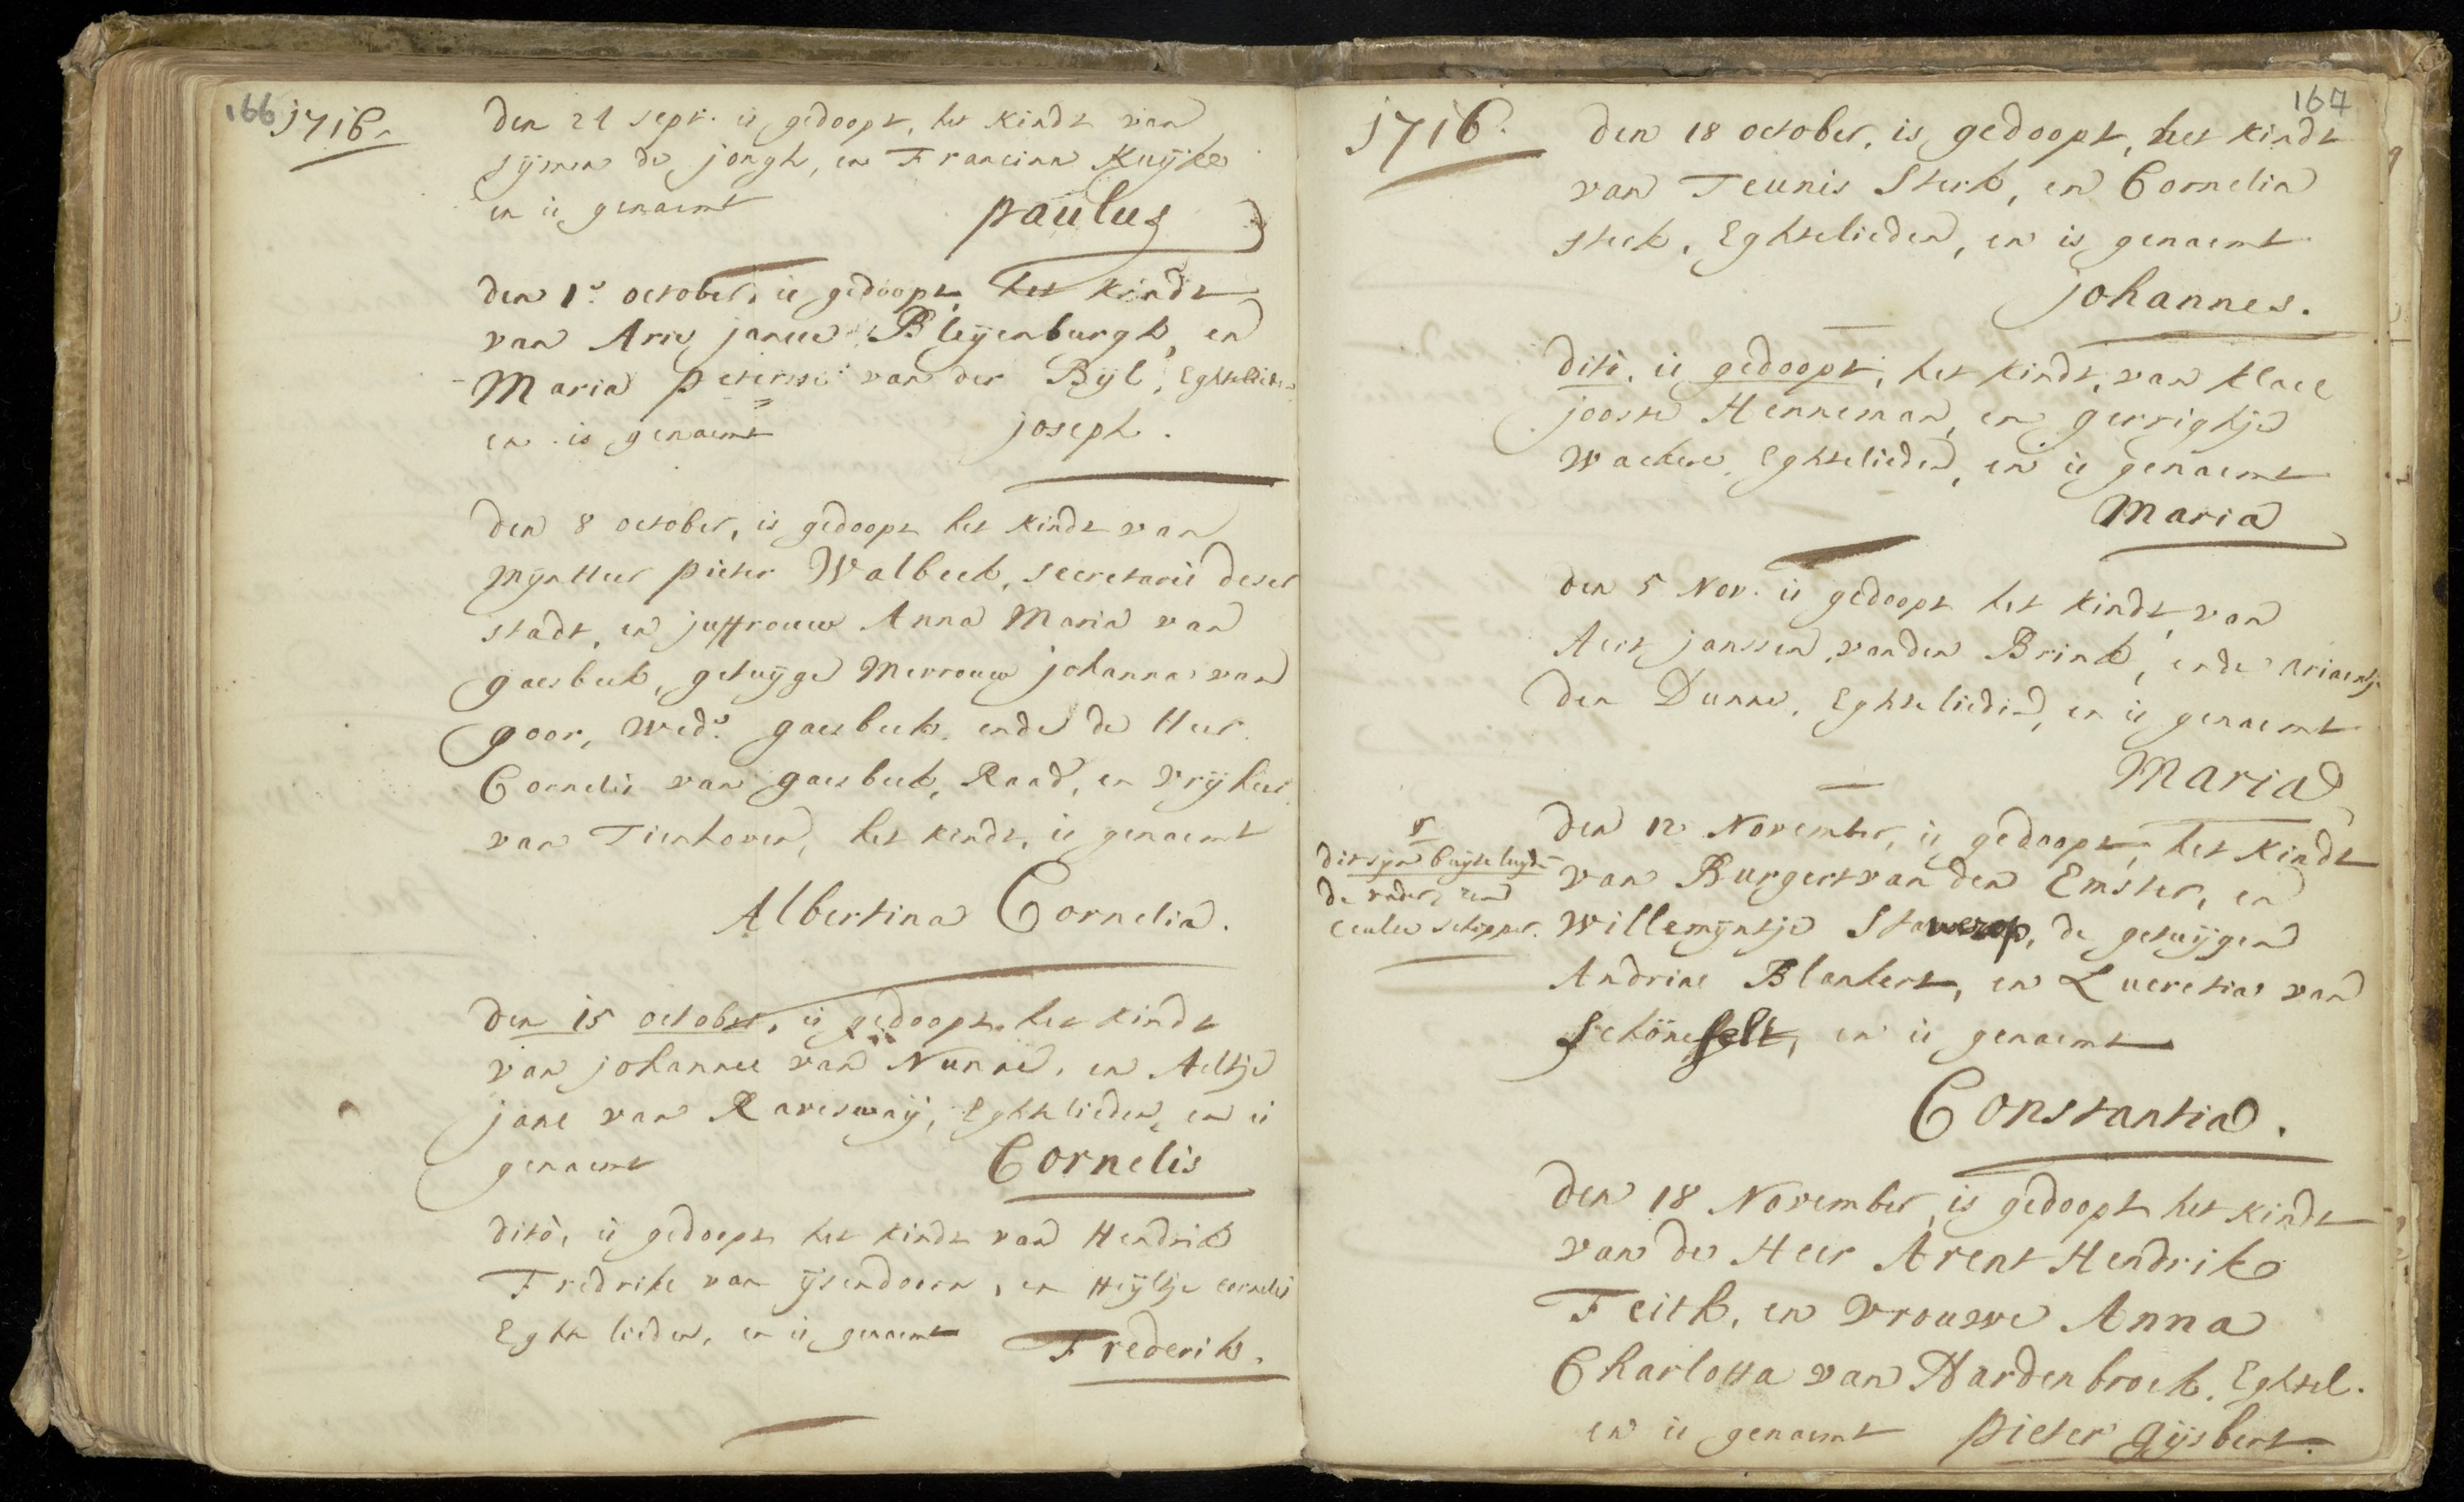 166
1716.
den 21 sept. is gedoopt, het kindt van
sijmen de jongh, en Francina Kuijke
en is genaemt paulus
den 1e october, is gedoopt, het kindt
van Arie janse Bleyenburgh, en
Maria peterse van der Bijl, Eghtelied.
en is genaemt joseph.
den 8 october, is gedoopt het kindt van
mijnHeer pieter Walbeek, secretaris deser
stadt, en juffrouw Anna Maria van
gaesbeek, getuijge Mevrouw johanna van
goor, wede gaesbeek, ende de Heer
Cornelis van gaesbeek, Raad, en vrijheer
van Tienhoven, het kindt, is genaemt
Albertina Cornelia.
den 15 october, is gedoopt het kindt
van johannes van Nunne, en Aeltje
jans van Ravesway, Eghtelieden, en is
genaemt Cornelis
dito, is gedoopt het kindt van Hendrik
Fredriks van ijsendoorn, en Heijltje cornelis
Eghtelieden, en is genaemt Frederik.
167
1716.
den 18 october, is gedoopt, het kindt
van Teunis Sterk, en Cornelia
sterk, Eghtelieden, en is genaemt
johannes.
dito, is gedoopt, het kindt, van klaes
jooste Henneman, en gerrightje
Wackere, Eghtelieden, en is genaemt
Maria
den 5 Nov. is gedoopt het kindt van
Aert janssen vanden Brink, ende Ariaentje
den Dunne, Eghtelieden, en is genaemt
Maria
den 12 November, is gedoopt, het kindt
dit sijn buijteluijd
van Burgert van den Emster, en
de vader, een
Willemijntje Staverop, de getuijgen
ceulse schipper.
Andries Blankert, en Lucretia van
schönefelt, en is genaemt
Constantia.
den 18 November, is gedoopt het kindt
van de Heer Arent Hendrik
Feith, en vrouwe Anna
Charlotta van Hardenbroek, Eghtel.
en is genaemt pieter gijsbert.